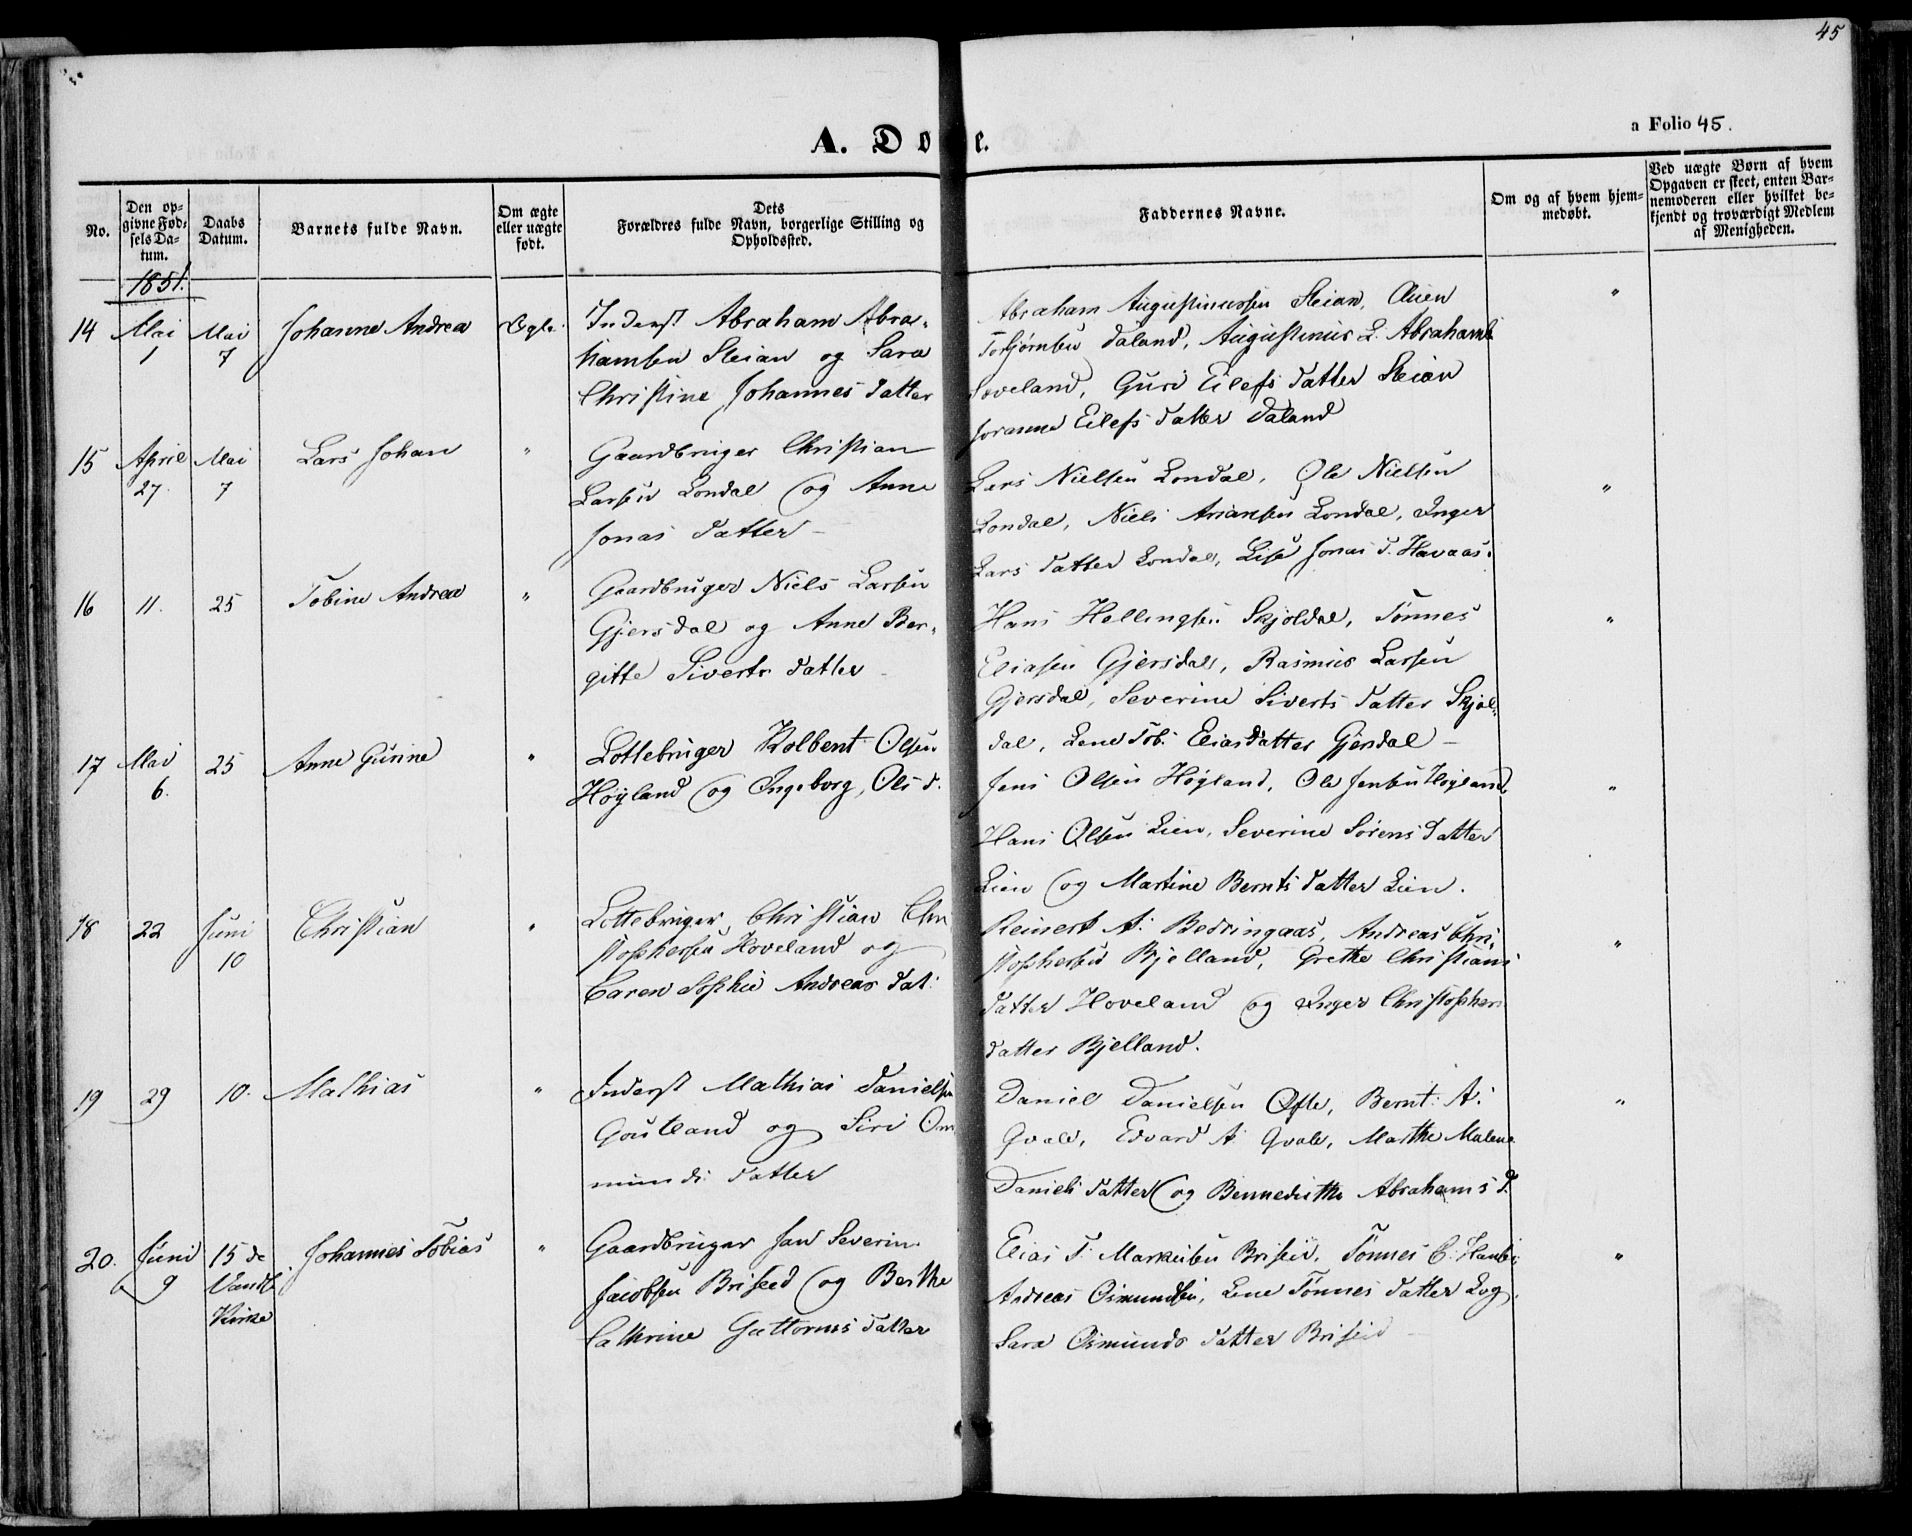 45
A. Do e.
a Folio 45.
No.
Den op-
givne Fød-
sels Da-
tum.
Daabs
Datum.
Barnets fulde Navn.
Om ægte
eller uægte
født.
Dets
Forældres fulde Navn, borgerlige Stilling og
Opholdssted.
Faddernes Navne.
Om og af hvem hjem-
medøbt.
Ved uægte Børn af hvem
Opgaven er skeet, enten Bar-
nemoderen eller hvilket be-
kjendt og troværdigt Medlem
af Menigheden.
1851.
14 Mai 1 Mai 7 Johanne Andrea Ægte.
Inderst Abraham Abra-
hamsen Sleian og Sara
Christine Johannes datter
Abraham Augustinussen Sleian,
Torbjørnsen Daland, Augustinus L. Abrahams
Soveland, Guri Eilefs datter Sleian
Eilefs datter Daland
"
15 April 27. Mai 7 Lars Johan "
Gaardbruger Christian
Larsen Londal og Anne
Jonas datter
Lars Nielsen Londal, Ole Nielsen
Londal, Niels Ariansen Londal, Inger
Lars datter Londal, Lise Jonas d. Havaas.
"
16 11. 25 Tobine Andrea "
Gaardbruger Niels Larsen
Gjersdal og Anne Ber-
gitte Siverts datter
Hans Hellingsen Skjoldal, Tønnes
Eliasen Gjersdal, Rasmus Larsen
Gjersdal, Severine Siverts datter Skjol-
dal, Lene Tob. Elias datter Gjersdal
"
17 Mai 6. 25 Anne Gurine "
Lottebruger Kolbent Olsen
Høyland og Ingeborg, Ols d.
Jens Olsen Høyland, Ole Jensen Høyland
Hans Olsen Lien, Severine Sørens datter
Lien og Martine Bernts datter Lien.
"
18 22 Juni 10 Christian "
Lottebruger Christian Chri
stophersen Hoveland og
Caren Sophie Andreas dat:
Reinert A. Bedringaas, Andreas Chri-
stophersen Bjelland, Grethe Christians
datter Hoveland og Inger Christophers
datter Bjelland.
"
19 29 10. Mathias "
Inderst Mathias Danielsen
Goutland og Siri Om
munds datter
Daniel Danielsen Øfte, Bernt A.
Qvale, Edvard A. Qvale, Marthe Malene
Daniels datter og Bennedicthe Abrahams d.
"
20. Juni 9 15 de Johannes Tobias "
Vandse
Kirke
Gaardbruger Jan Severin
Jacobsen Briseid og Berthe
Cathrine Guttorms datter
Elias T. Markusen Briseid, Tønnes C.
Andreas Osmundsen, Lene Tønnes datter Log,
Sara Osmunds datter Briseid
"